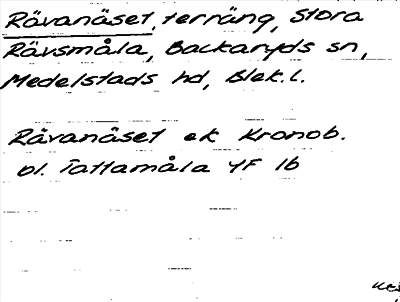 Rävanäset, terräng, Stora
Rävsmåla, Backaryds sn,
Medelstads hd, Blek.l.
Rävanäset ek Kronob.
bl. Tattamåla 4F 1b